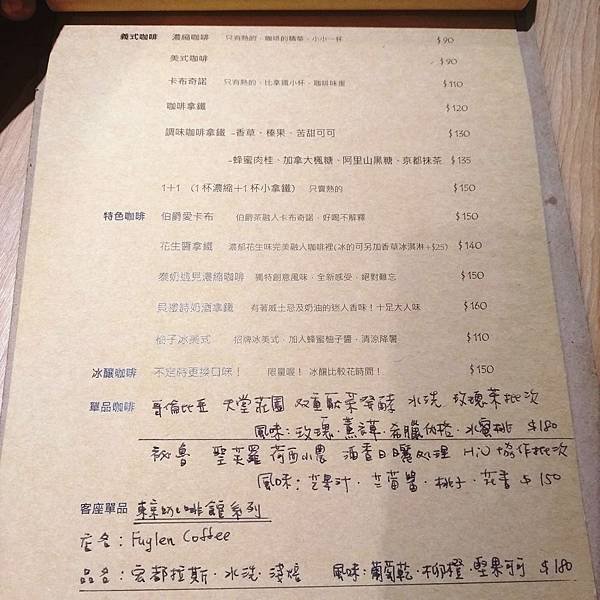 義式咖啡 濃縮咖啡 只有熱的,咖啡的精華,小小一杯 $90
美式咖啡 $90
卡布奇諾 只有熱的,比拿鐵小杯,咖啡味重 $110
咖啡拿鐵 $120
調味咖啡拿鐵 -香草、榛果、苦甜可可 $130
-蜂蜜肉桂、加拿大楓糖、阿里山黑糖、京都抹茶 $135
1+1 (1杯濃縮+1杯小拿鐵) 只賣熱的 $150
特色咖啡 伯爵愛卡布 伯爵茶融入卡布奇諾,好喝不解釋 $150
花生醬拿鐵 濃郁花生味完美融入咖啡裡(冰的可另加香草冰淇淋+$25) $140
泰奶遇見濃縮咖啡 獨特創意風味,全新感受,絕對難忘 $150
貝禮詩奶酒拿鐵 有著威士忌及奶油的迷人香味!十足大人味 $160
柚子冰美式 招牌冰美式,加入蜂蜜柚子醬,清涼降暑 $110
冰釀咖啡 不定時更換口味! 限量喔! 冰釀比較花時間! $150
單品咖啡 哥倫比亞 天堂莊園 双重厭氧發酵 水洗 玫瑰茉批次
風味:玫瑰.薰譁.希臘油橙.水蜜桃 $180
祕魯 聖芙羅 荷西小農 酒香日曬處理 HiU協作批次
風味:芒果汁.草莓醬.桃子.花香 $150
客座單品 東京的咖啡館系列
店名:Fuglen Coffee
品名:宏都拉斯.水洗.淺焙 風味:葡萄乾.柳橙.堅果可可 $180